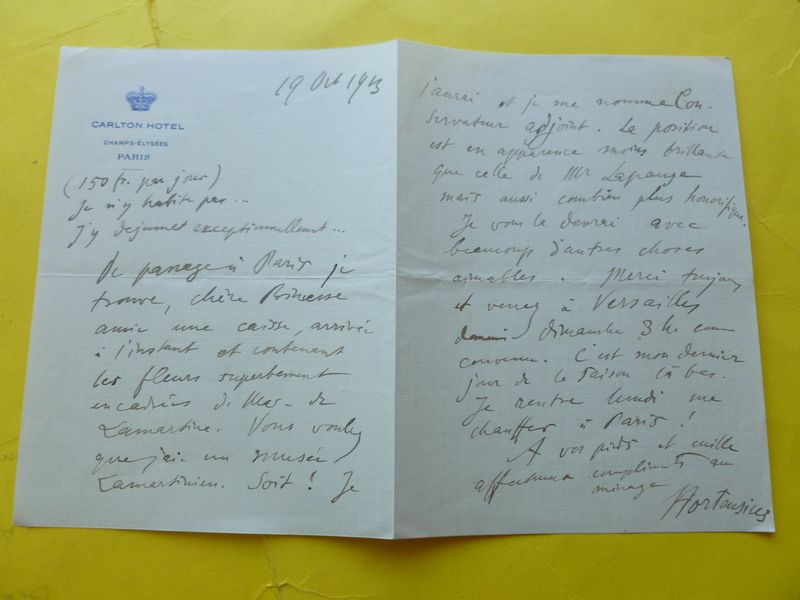 19 Oct 1913
CARLTON HOTEL
CHAMPS-ÉLYSÉES
PARIS
(150 fr. par jour)
Je n'y habite pas...
J'y dejeunet exceptionnellement...
De passage à Paris je
trouve, chère Princesse
amie une caisse, arrivée
à l'instant et contenant
les fleurs superbement
encadrées de Mme de
Lamartine. Vous voulez
que j'aie un musée
Lamartinien. Soit ! Je
j'aurai et je me nomme Con-
servateur adjoint. La position
est en apparence moins brillante
que celle de Mr Lagrange
mais aussi combien plus honorifique.
Je vous la devrai avec
beaucoup d'autres choses
aimables. Merci toujours
et venez à Versailles
dimanche 3 he comme
convenu. C'est mon dernier
jour de la saison là bas.
Je rentre lundi me
chauffer à Paris !
A vos pieds et mille
affectueux compliments au
ménage